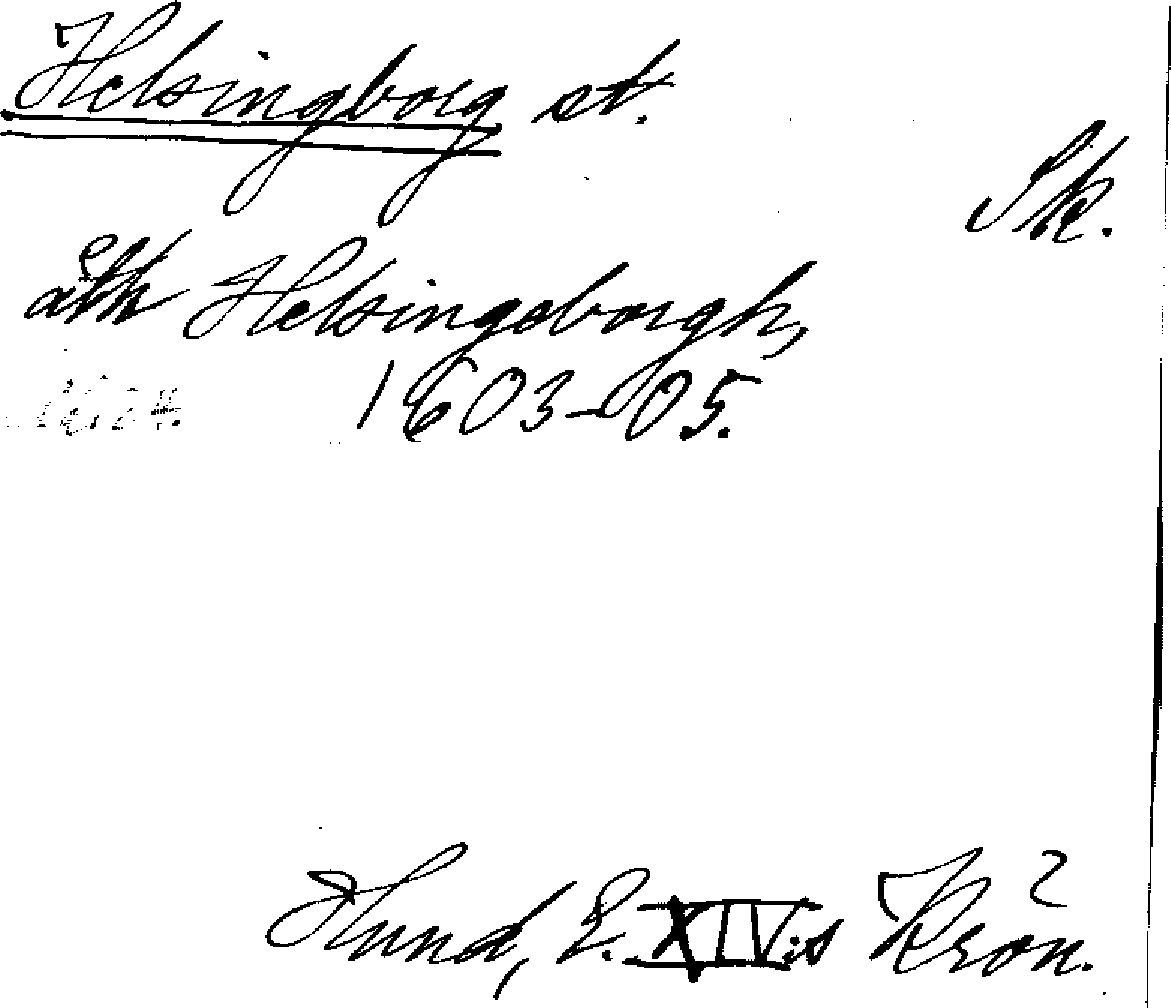 Helsingborg st.
Sk.
åth Helsingsborgh,
1603-05.
Hund, E. XIV:s Krön.